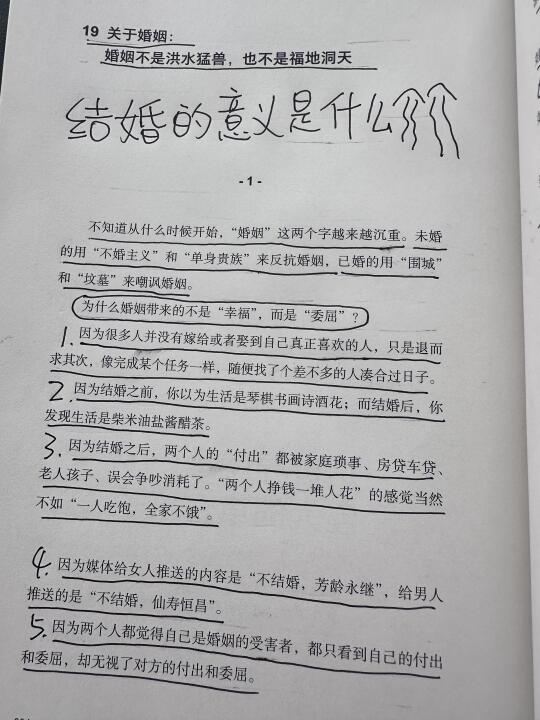 19 关于婚姻：
婚姻不是洪水猛兽，也不是福地洞天
结婚的意义是什么
- 1 -
不知道从什么时候开始，“婚姻”这两个字越来越沉重。未婚
的用“不婚主义”和“单身贵族”来反抗婚姻，已婚的用“围城”
和“坟墓”来嘲讽婚姻。
为什么婚姻带来的不是“幸福”，而是“委屈”？
1. 因为很多人并没有嫁给或者娶到自己真正喜欢的人，只是退而
求其次，像完成某个任务一样，随便找了个差不多的人凑合过日子。
2. 因为结婚之前，你以为生活是琴棋书画诗酒花；而结婚后，你
发现生活是柴米油盐酱醋茶。
3. 因为结婚之后，两个人的“付出”都被家庭琐事、房贷车贷、
老人孩子、误会争吵消耗了。“两个人挣钱一堆人花”的感觉当然
不如“一人吃饱，全家不饿”。
4. 因为媒体给女人推送的内容是“不结婚，芳龄永继”，给男人
推送的是“不结婚，仙寿恒昌”。
5. 因为两个人都觉得自己是婚姻的受害者，都只看到自己的付出
和委屈，却无视了对方的付出和委屈。